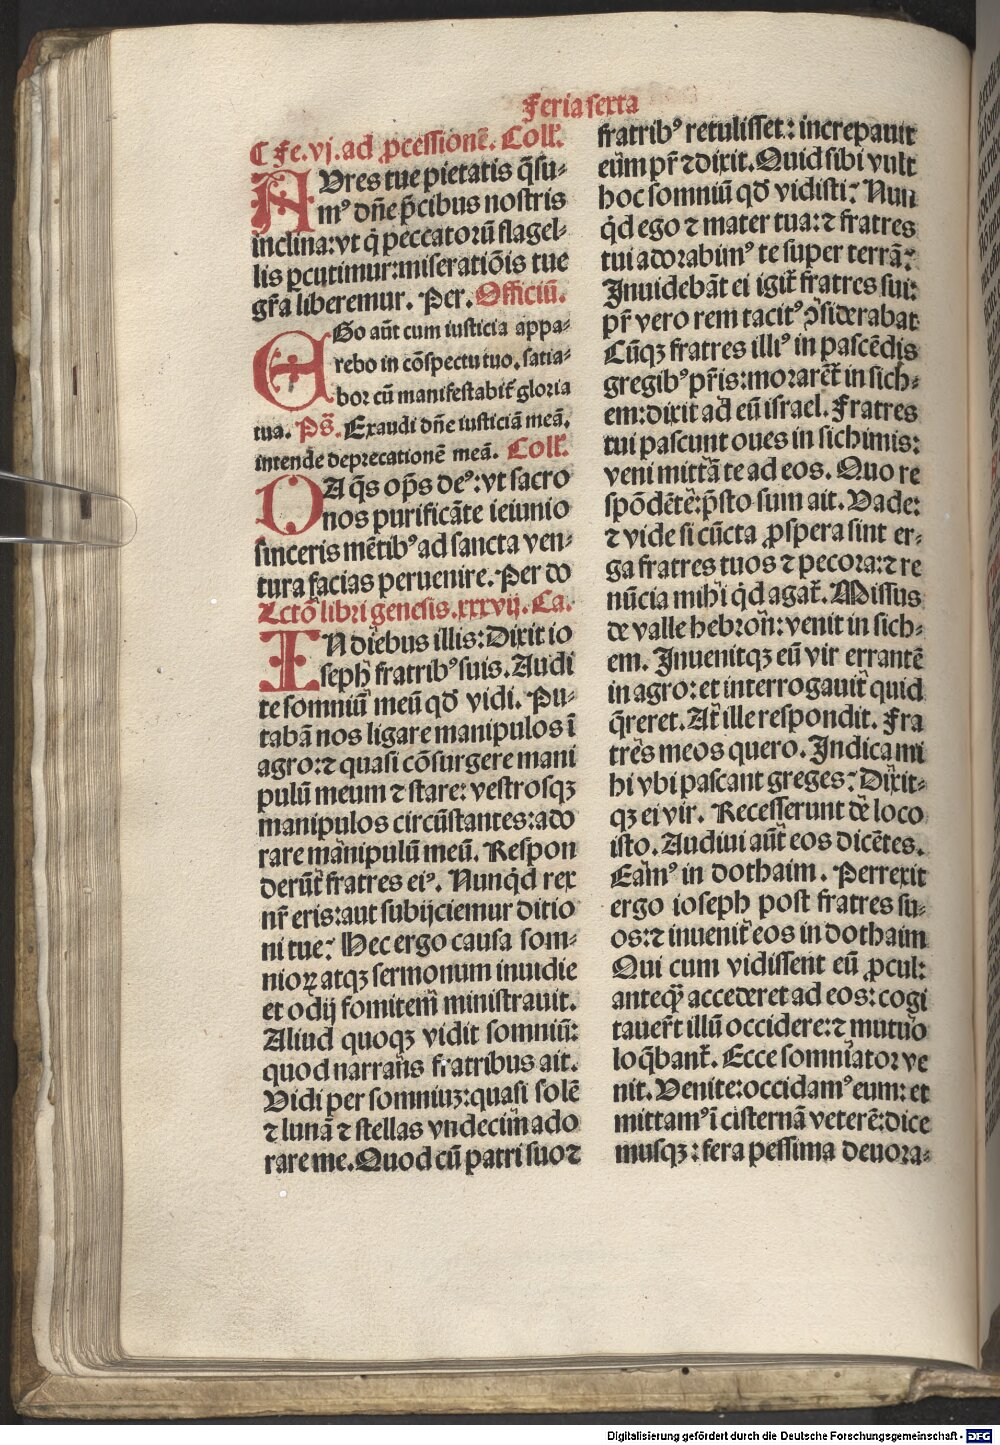 Feria sexta
¶ Fe.vj.ad ꝓcessionē. Coll'.
AUres tue pietatis q̄su⸗
m⁹ dn̄e p̄cibus nostris
inclina:vt q̇ peccatorū flagel⸗
lis ꝑcutimur:miseratiōis tue
gr̄a liberemur. Per. Officiū.
EGo aūt cum iusticia appa⸗
rebo in cōspectu tuo. satia⸗
bor cū manifestabit̉ gloria
tua. Ps̄. Exaudi dn̄e iusticiā meā.
intende deprecationē meā. Coll'.
DA q̄s op̄s de⁹:vt sacro
nos purificāte ieiunio
sinceris mētib⁹ ad sancta ven⸗
tura facias peruenire. Per do
Lctō libri genesis.xxxvij. Ca.
IN diebus illis: Dixit io
seph fratrib⁹ suis. Audi
te somniū meū qď vidi. Pu⸗
tabā nos ligare manipulos ī
agro:⁊ quasi cōsurgere mani
pulū meum ⁊ stare: vestrosqꝫ
manipulos circūstantes:ado
rare manipulū meū. Respon
derūt fratres ei⁹. Nunq̇d rex
nr̄ eris:aut subijciemur ditio
ni tue? Hec ergo causa som⸗
nioꝝ atqꝫ sermonum inuidie
et odij fomitem ministrauit.
Aliud quoqꝫ vidit somniū:
quod narrans fratribus ait.
Vidi per somniuꝫ:quasi solē
⁊ lunā ⁊ stellas vndecim ado
rare me. Quod cū patri suo ⁊
fratrib⁹ retulisset: increpauit
eūm pr̄ ⁊ dixit. Quid sibi vult
hoc somniū qď vidisti? Nun
q̇d ego ⁊ mater tua:⁊ fratres
tui adorabim⁹ te super terrā?
Inuidebāt ei igit̉ fratres sui:
pr̄ vero rem tacit⁹ ꝯsiderabat
Cūqꝫ fratres illi⁹ in pascēdis
gregib⁹ pr̄is:morarēt̉ in sich⸗
em:dixit ad eū israel. Fratres
tui pascunt oues in sichimis:
veni mittā te ad eos. Quo re
spōdēte:p̄sto sum ait. Vade:
⁊ vide si cūcta ꝓspera sint er⸗
ga fratres tuos ⁊ pecora:⁊ re
nūcia mihi q̇d agat̉. Missus
de valle hebron:venit in sich⸗
em. Inuenitqꝫ eū vir errantē
in agro:et interrogauit quid
q̄reret. At ille respondit. Fra
tres meos quero. Indica mi
hi vbi pascant greges? Dixit⸗
qꝫ ei vir. Recesserunt de loco
isto. Audiui aūt eos dicētes.
Eam⁹ in dothaim. Perrexit
ergo ioseph post fratres su⸗
os:⁊ inuenit eos in dothaim
Qui cum vidissent eū ꝓcul:
anteq̄ accederet ad eos:cogi
tauer̄t illū occidere:⁊ mutuo
loq̄bant̉. Ecce somniator ve
nit. Venite:occidam⁹ eum: et
mittam⁹ ī cisternā veterē:dice
musqꝫ: fera pessima deuora⸗
Digitalisierung gefördert durch die Deutsche Forschungsgemeinschaft - DFG